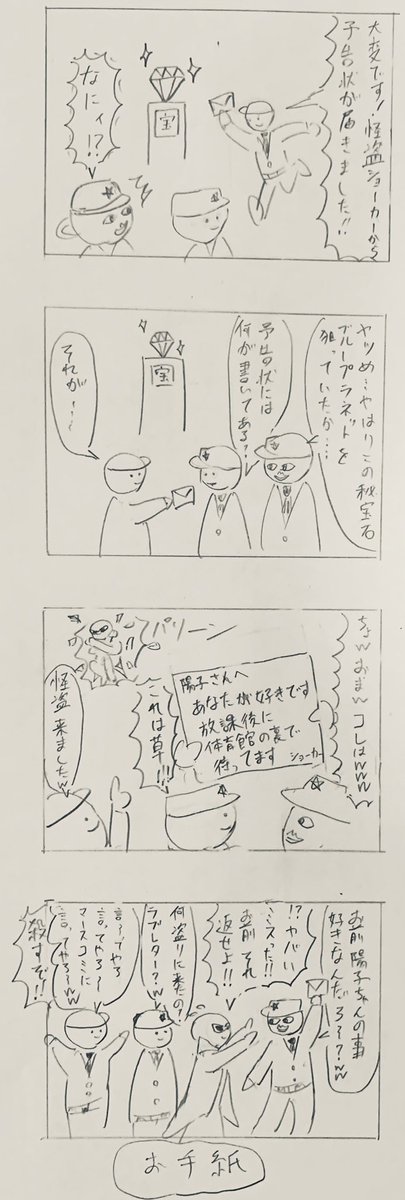 大変です！怪盗ジョーカーから
予告状が届きました!!
宝
なにィ!?
ヤツめ…やはりこの秘宝石
ブループラネットを
狙っていたか…
予告状には
何が書いてある？
宝
それが…
ちょw おまw コレはwww
パリーン
陽子さんへ
あなたが好きです
放課後に
体育館の裏で
待ってます
ジョーカー
これは草!!!
怪盗来ましたw
お前陽子ちゃんの事
好きなんだろ〜？ww
!?ヤバい
ミスった!!
お前それ
返せよ!!
何盗りに来たの？
ラブレター？w
言ってやろ
言ってやろ〜
マースコミに
言ってやろ〜ww
殺すぞ!!
お手紙